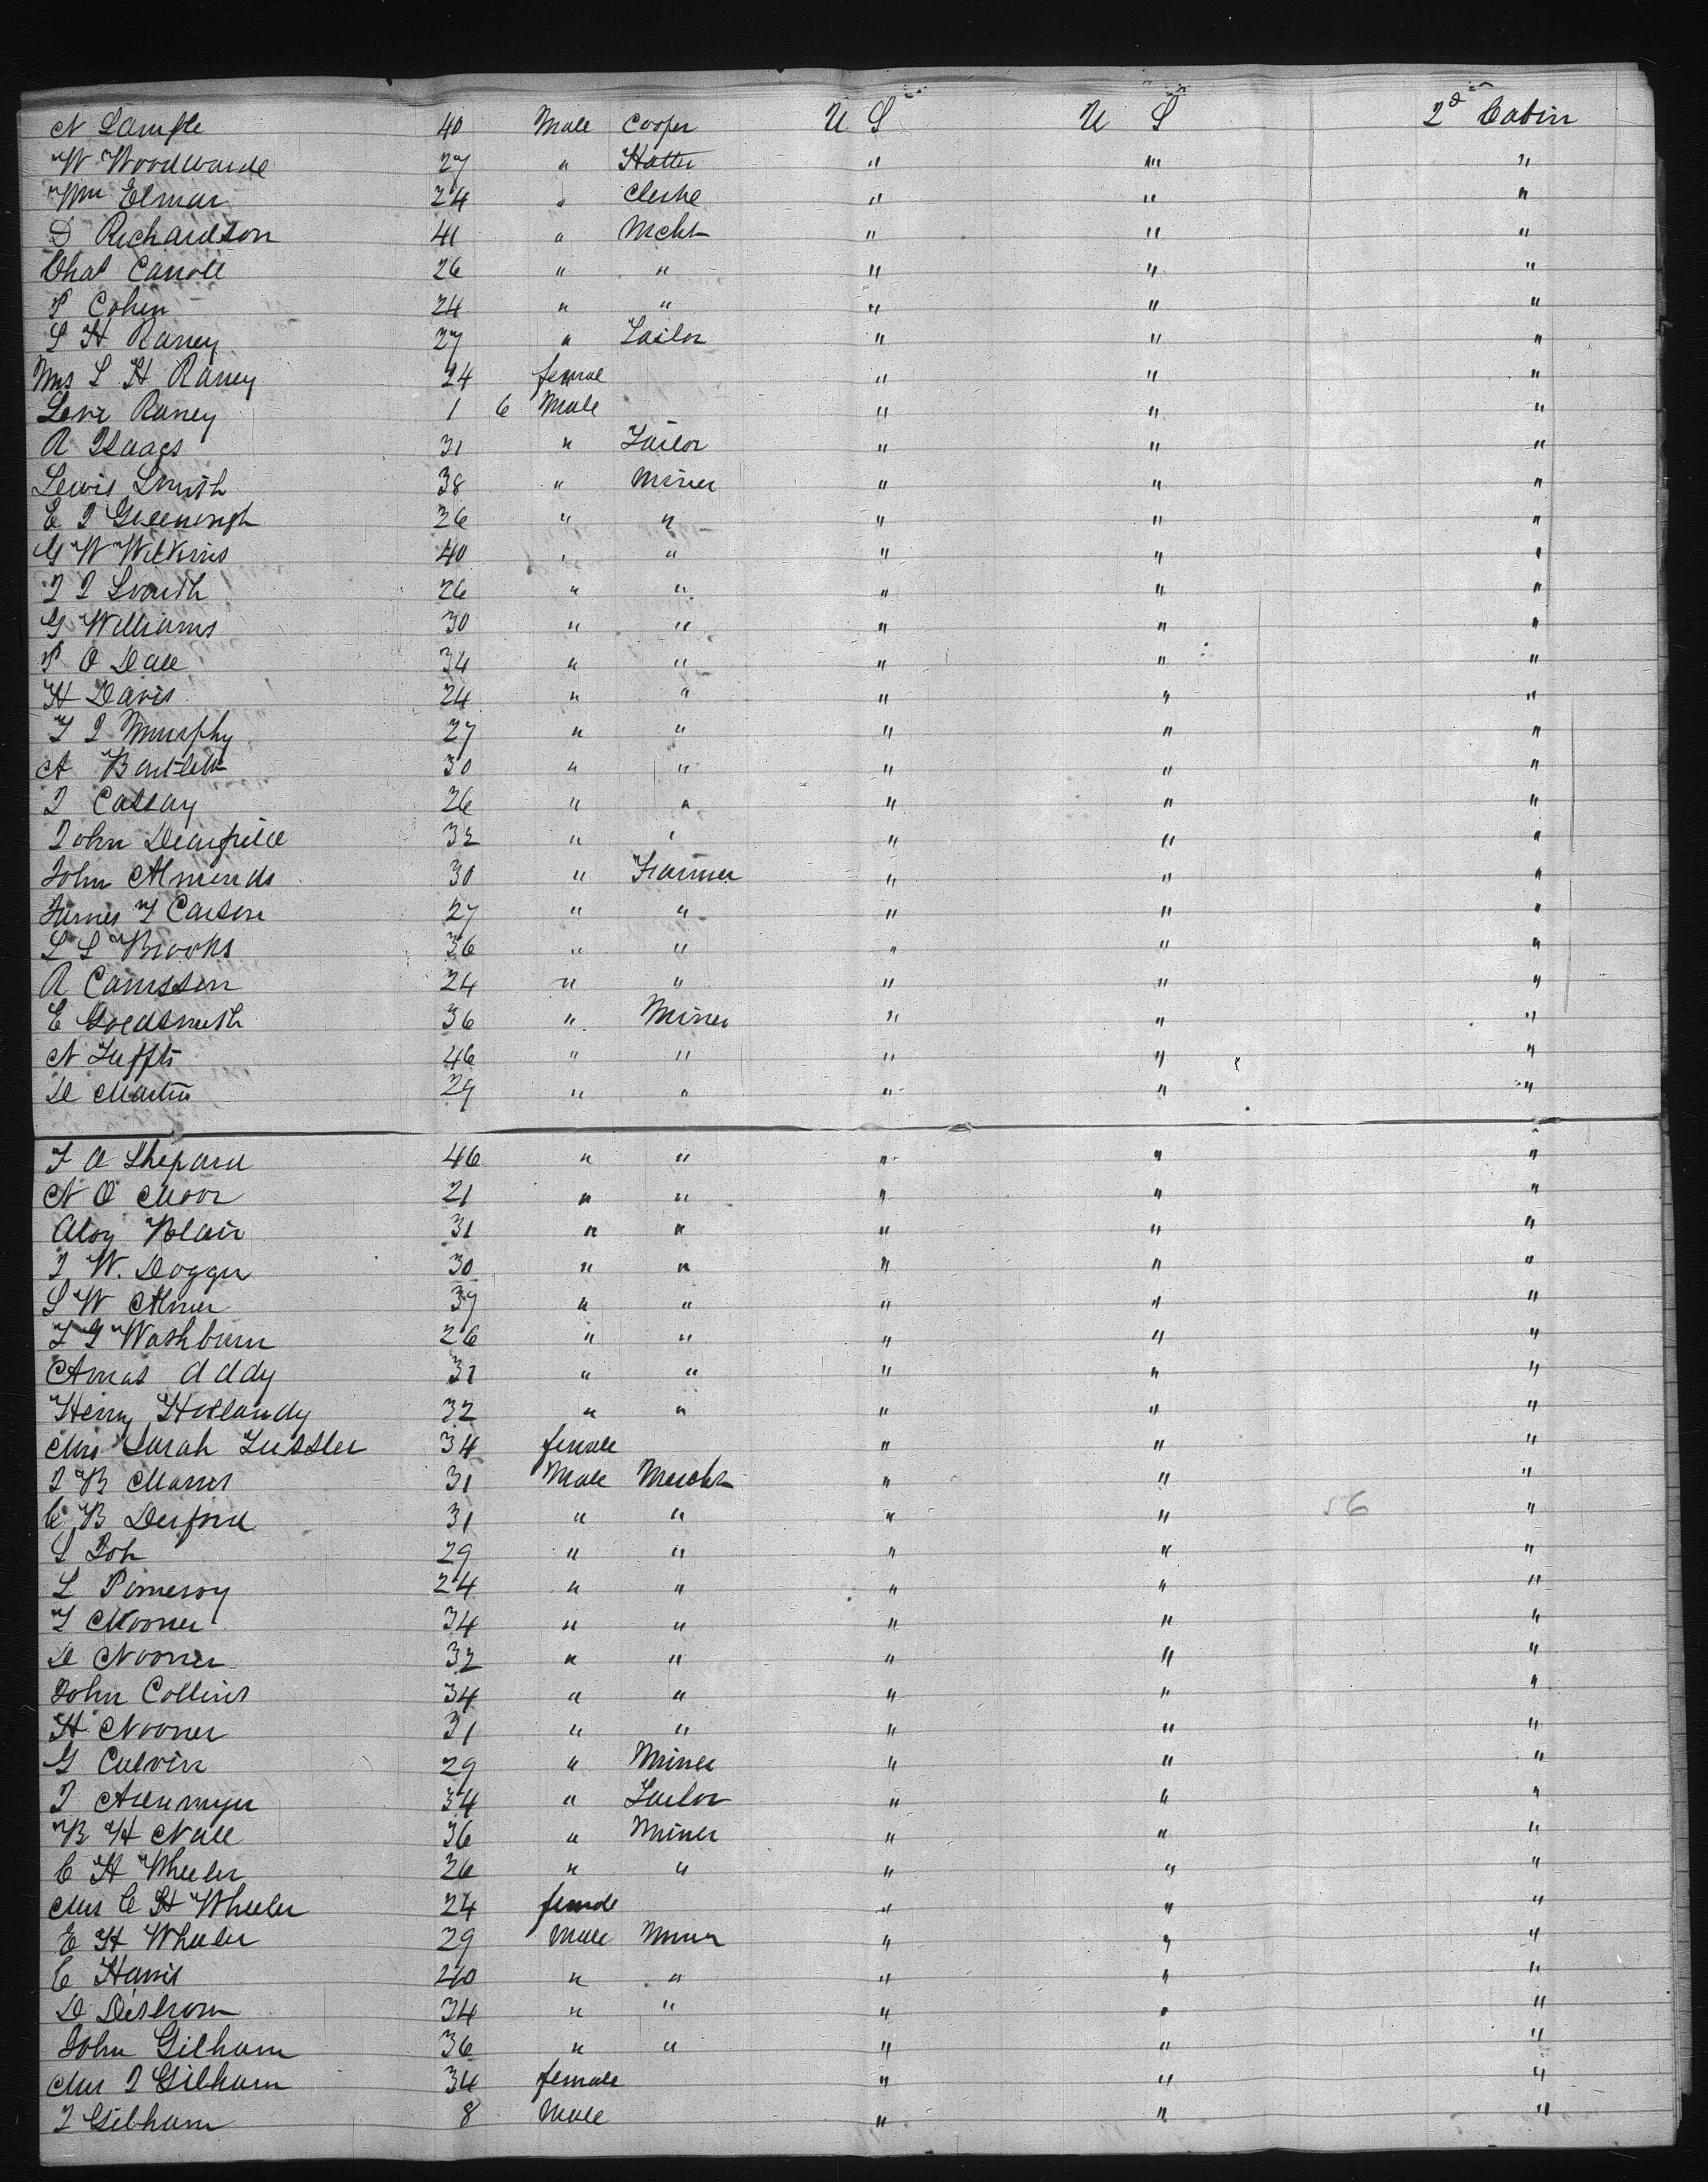 N Sample 40 Male Cooper U S U S 2d Cabin
W Woodwarde 27 " Hatter " " "
Wm Elmar 24 " Clerke " " "
D Richardson 41 " Mcht " " "
Chas Carroll 26 " " " " "
P Cohen 24 " " " " "
S H Raney 27 " Tailor " " "
Mrs S H Raney 24 female " " "
Levi Raney 1 6 Male " " "
A Isaacs 31 " Tailor " " "
Lewis Smith 38 " Miner " " "
E J Greenough 26 " " " " "
G W Wilkins 40 " " " " "
J J Smith 26 " " " " "
G Williams 30 " " " " "
P O Dall 34 " " " " "
H Davis 24 " " " " "
T J Murphy 27 " " " " "
A Bartlett 30 " " " " "
J Cassay 26 " " " " "
John Dearfield 32 " " " " "
John Almends 30 " Farmer " " "
James T Carson 27 " " " " "
L L Brooks 36 " " " " "
A Camsson 24 " " " " "
E Goldsmith 36 " Miner " " "
N Tuffts 46 " " " " "
D Martin 29 " " " " "
F A Shepard 46 " " " " "
N O Moor 21 " " " " "
Aloy Blair 31 " " " " "
J W. Dogger 30 " " " " "
S W Almer 39 " " " " "
T G Washburn 26 " " " " "
Amas Addy 31 " " " " "
Henry Hollandy 32 " " " " "
Mrs Sarah Tussler 34 female " " "
J B Morris 31 Male Mercht " " "
C B Derford 31 " " " " 56 "
S Joh 29 " " " " "
L Pomeroy 24 " " " " "
T Mooner 34 " " " " "
D Nooner 32 " " " " "
John Collins 34 " " " " "
H Nooner 31 " " " " "
G Culvin 29 " Miner " " "
J Allenmyer 34 " Tailor " " "
B H Nall 36 " Miner " " "
C H Wheeler 26 " " " " "
Mrs C H Wheeler 24 female " " "
E H Wheeler 29 Male Miner " " "
C Harris 40 " " " " "
D Distrom 34 " " " " "
John Gilham 36 " " " " "
Mrs J Gilham 34 female " " "
J Gilham 8 Male " " "